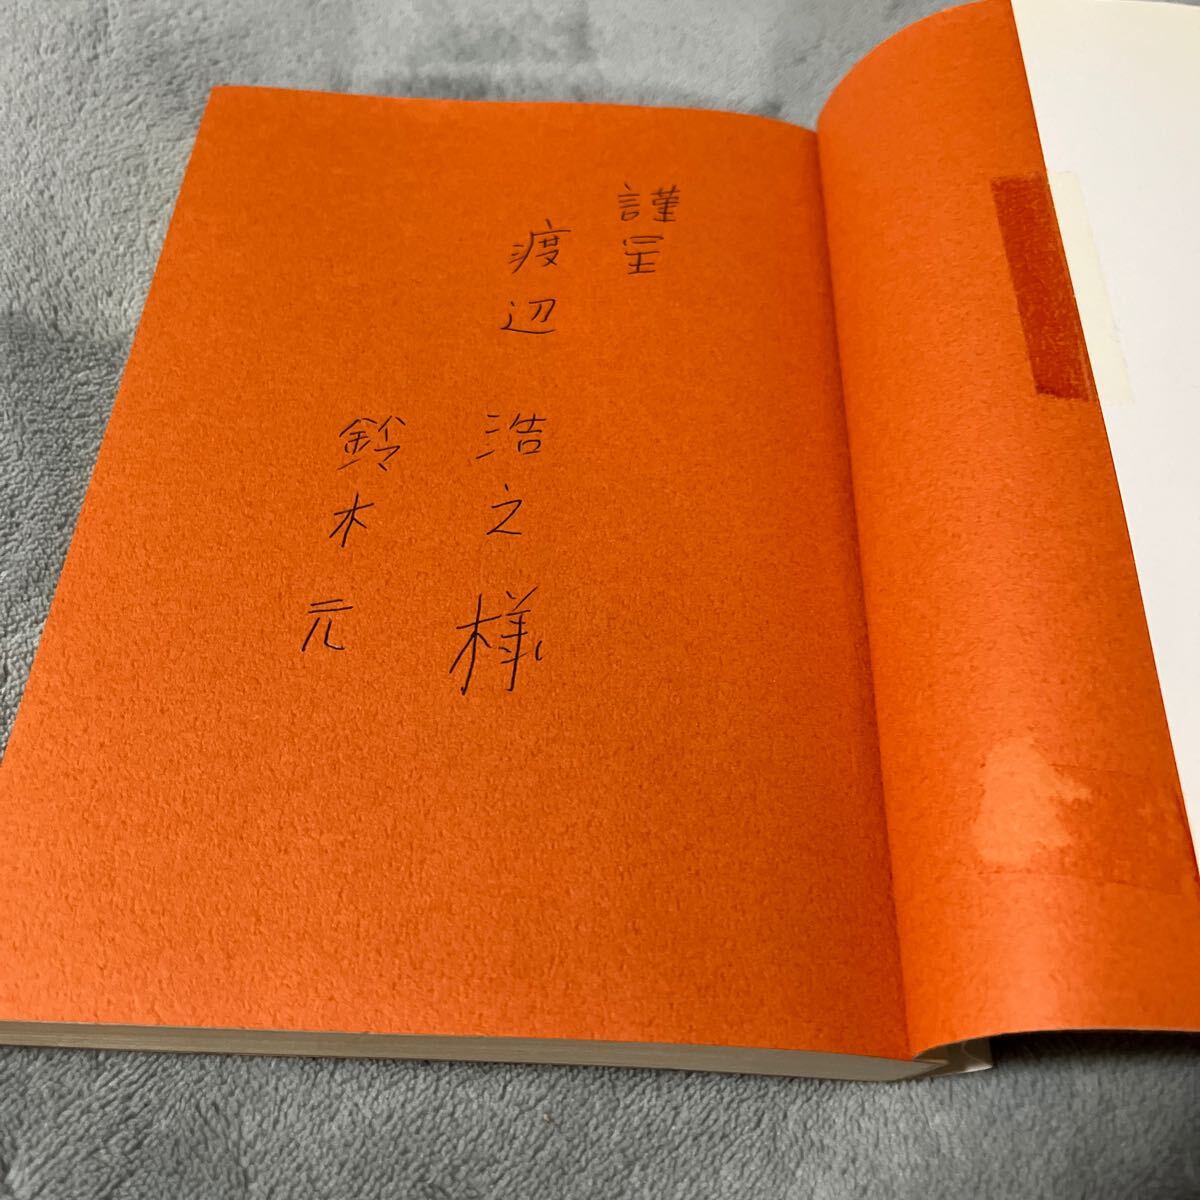 謹呈
渡辺 浩之様
鈴木元